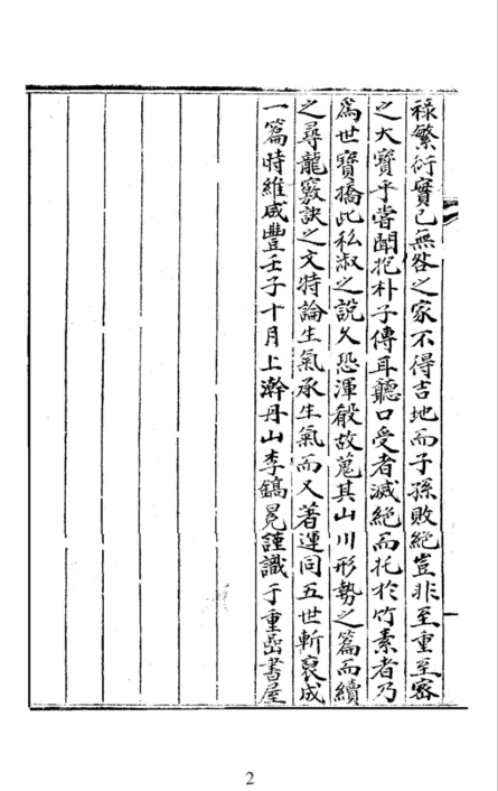 祿繁衍實已無咎之家不得吉地而子孫敗絶豈非至重至密
之大寶乎嘗聞抱朴子傳耳聽口受者滅絶而托於竹素者乃
爲世寶撟此私淑之說久恐渾殽故蒐其山川形勢之篇而續
之尋龍竅訣之文特論生氣承生氣而又著運同五世斬裒成
一篇時維咸豐壬子十月上澣丹山李鎬冕謹識于重嵒書屋
2